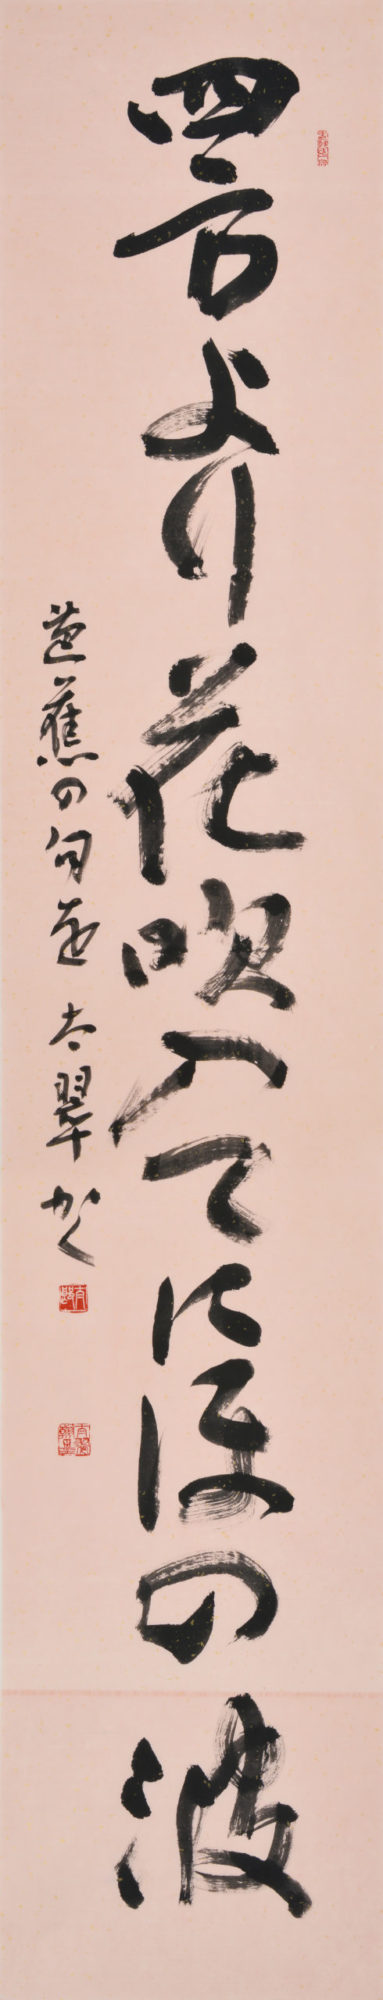 四方より花吹入てにほの波
芭蕉の句を 太翠かく